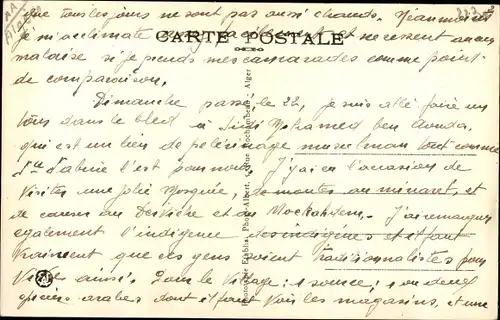 que tous les jours ne sont pas aussi chauds. Néanmoins
CARTE POSTALE
je m'acclimate et ne ressent aucun
malaise si je prends mes camarades comme point
de comparaison.
Dimanche passé le 22, je suis allé faire un
tour dans le bled à Sidi Mohamed ben Aouda,
qui est un lieu de pélerinage musulman tout comme
Ste d'Auray l'est pour nous. J'ai eu l'occasion de
visiter une jolie Mosquée, de monter au minaret, et
de causer au Derviche et au Mockahdem. J'ai remarqué
également l'indigence des indigènes et il faut
vraiment que ces gens soient traditionnalistes pour
vivre ainsi. Dans le village : 1 source ; 1 ou deux
épiciers arabes dont il faut voir les magasins, et une
Phototypie Etablis. Photo-Albert, Alger